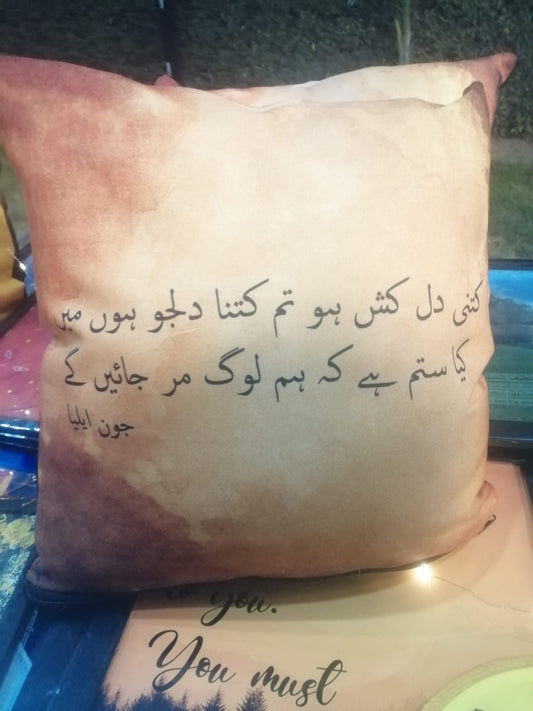 کتنی دل کش ہو تم کتنا دلجو ہوں میں
کیا ستم ہے کہ ہم لوگ مر جائیں گے
جون ایلیا
to you.
You must